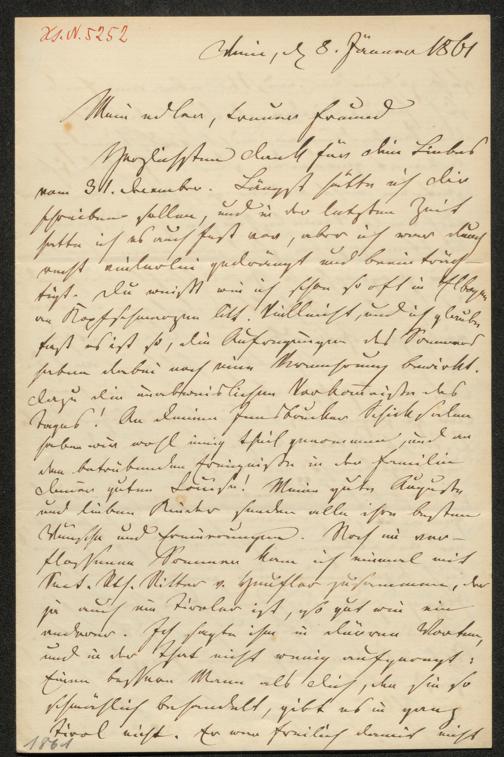 Hs. N. 5252
Wien, d. 8. Jänner 1861
Mein edler, treuer Freund
Herzlichsten Dank für dein Liebes
vom 31. December. Längst hätte ich dir
schreiben sollen, und in der letzten Zeit
hatte ich es auch fest vor, aber ich war durch
recht vielerlei gedrängt und beeinträch-
tigt. Du weißt wie ich schon so oft in
an Kopfschmerzen litt. Vielleicht, und ich glaube
fast es ist so, die Aufregungen des Sommers
haben dabei noch eine Vermehrung bewirkt.
dazu die unerquicklichen Vorkomnisse des
Tages! An Deinen Innsbrucker Schicksalen
haben wir wohl innig theil genommen, und an
den betrübenden Ereignissen in der Familie
deiner guten Louise! Meine gute Auguste
und lieben Kinder senden alle ihre besten
Wünsche und Erinnerungen. Noch im ver-
flossenen Sommer kam ich einmal mit
Sect. Rth. Ritter v. Heufler zusammen, der
ja auch ein Tiroler ist, so gut wie ein
anderer. Ich sagte ihm in dürren Worten,
und in der That nicht wenig aufgeregt:
Einen bessern Mann als dich, den sie so
schmählich behandelt, gibt es in ganz
Tirol nicht. Er war freilich damit nicht
1861